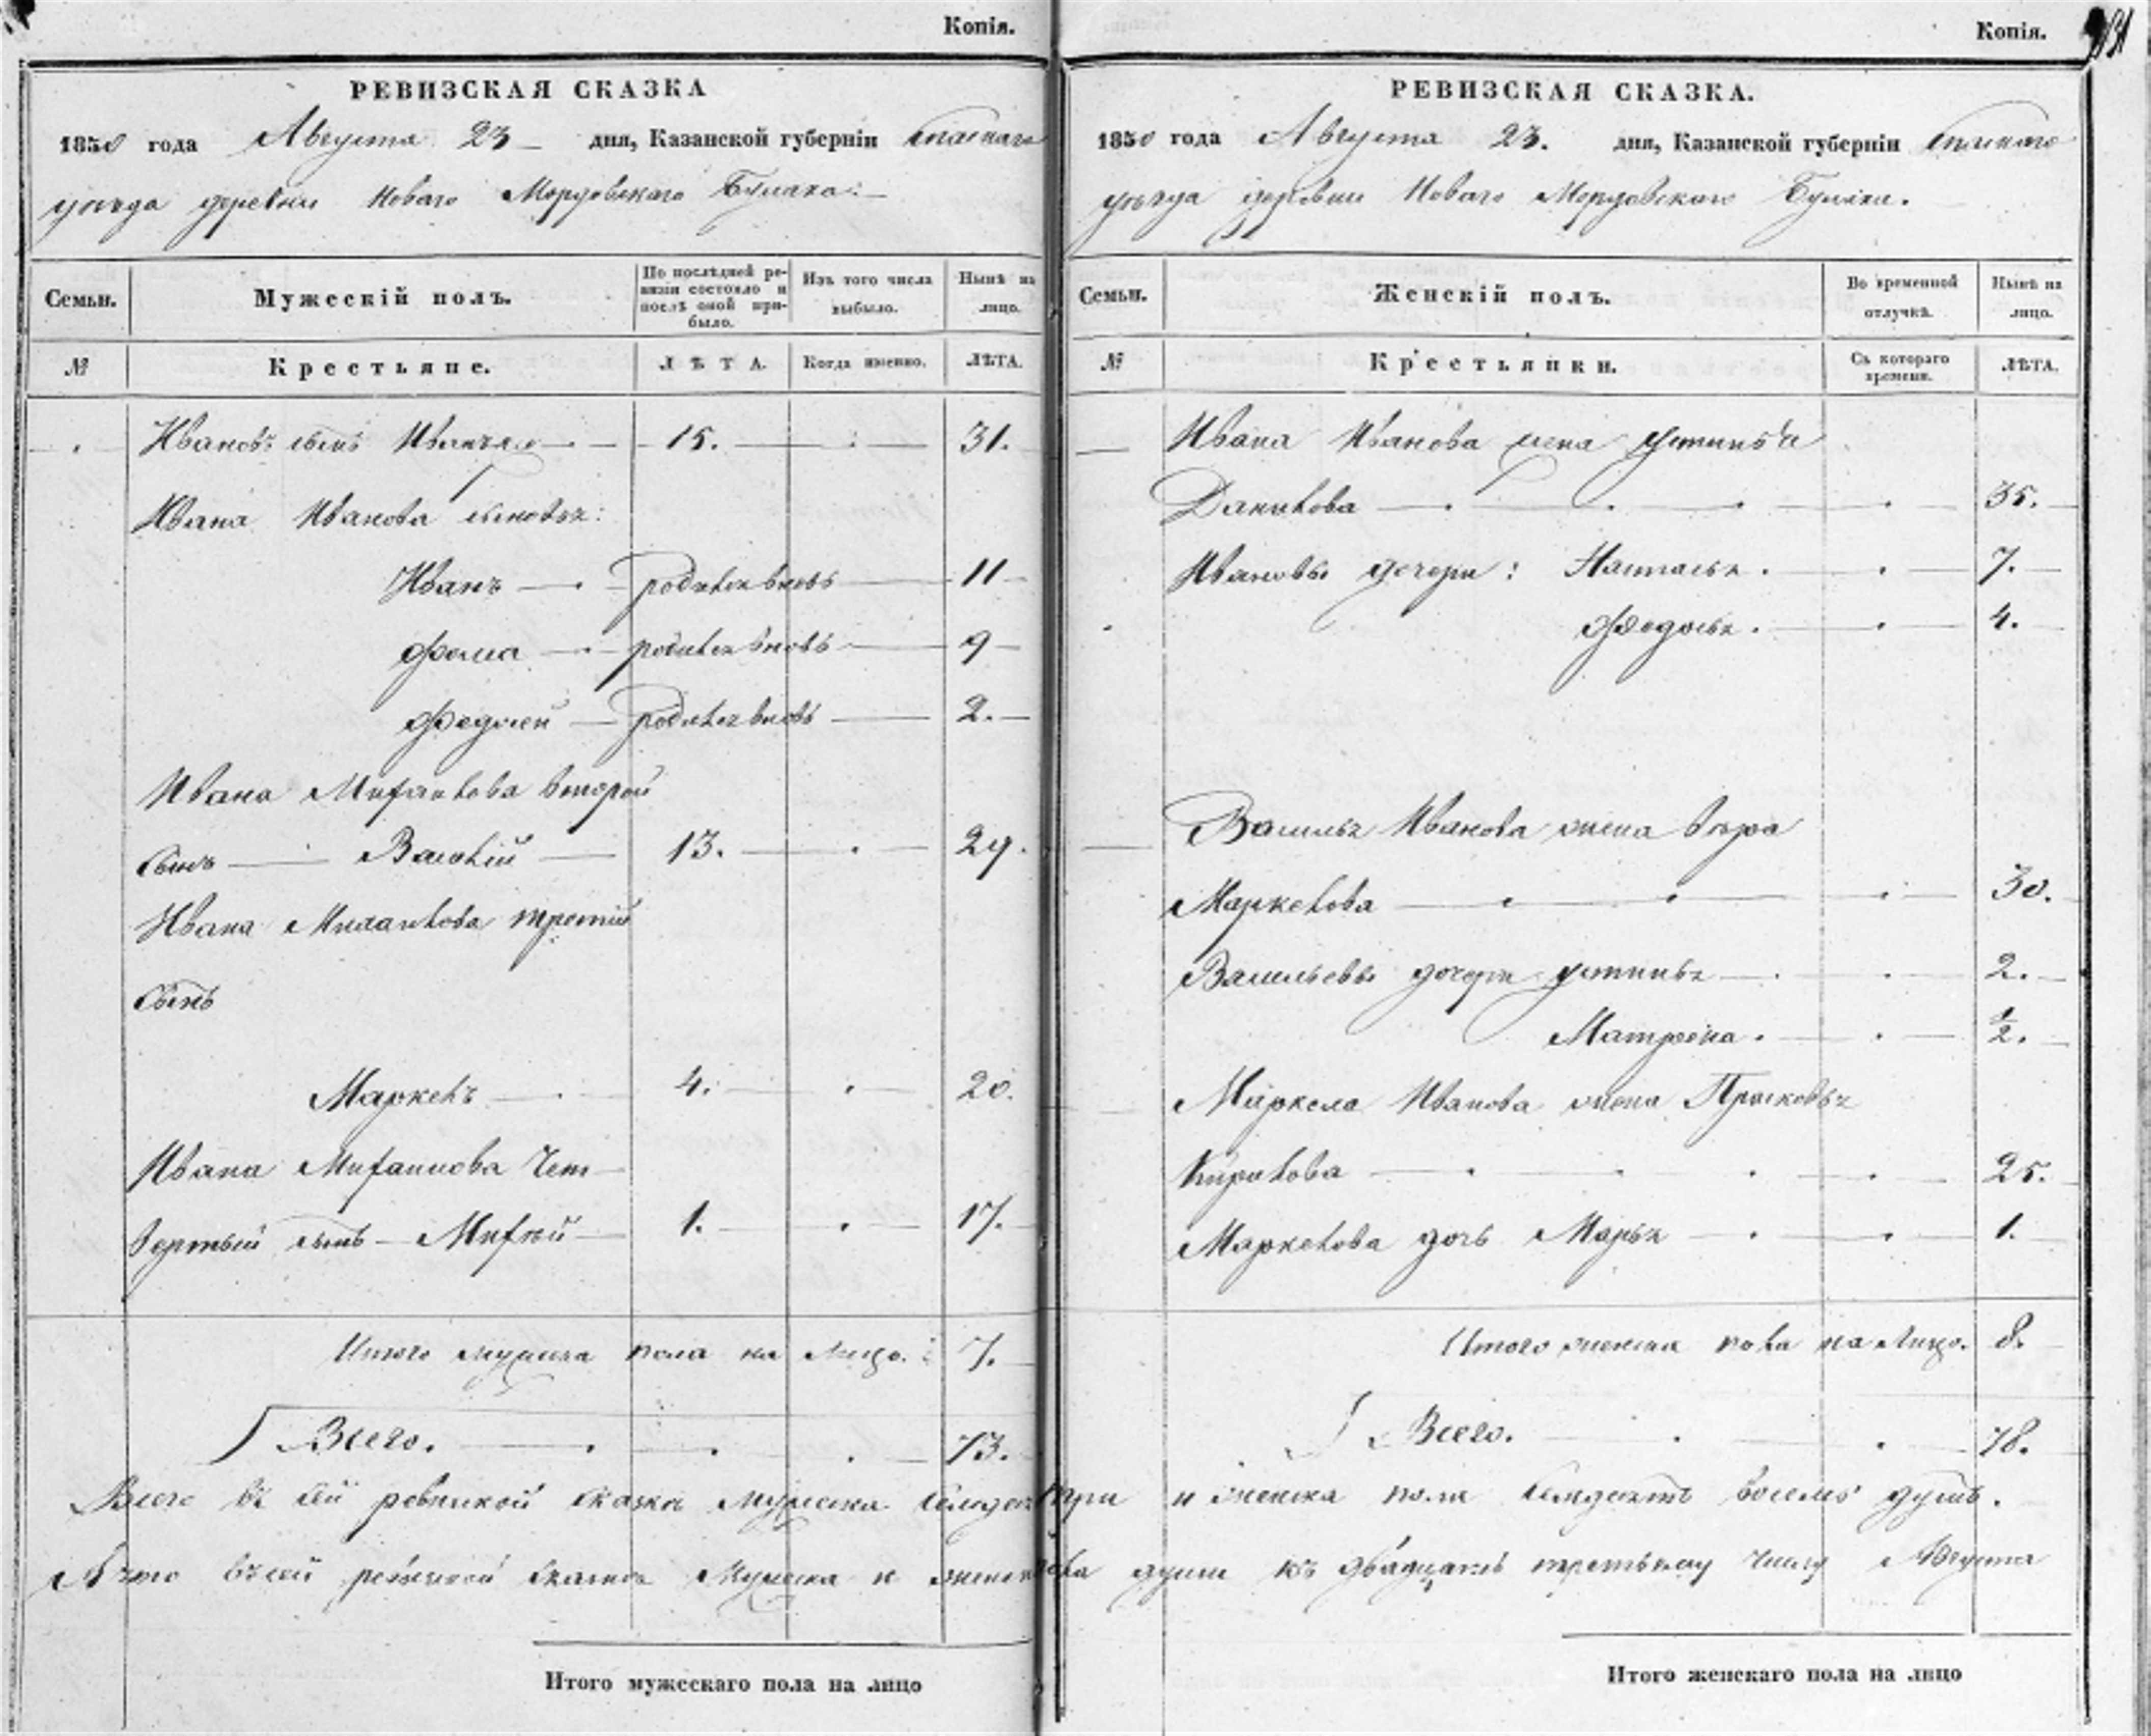 Копія.
РЕВИЗСКАЯ СКАЗКА
1850 года Августа 23 дня, Казанской губерніи Спаскаго
уѣзда деревни Новаго Мордовскаго Булака:
Семьи. Мужескій полъ. По послѣдней ревизіи состояло и послѣ оной прибыло. Изъ того числа выбыло. Нынѣ на лицо.
№ Крестьяне. ЛѢТА. Когда именно. ЛѢТА.
Ивановъ сынъ 15. 31.
Ивана Иванова сыновья:
Иванъ родился вновь 11
Фома родился вновь 9
Федосей родился вновь 2.
Ивана Михаилова второй
сынъ Василій 13. 29.
Ивана Михаилова третій
сынъ
Маркелъ 4. 20.
Ивана Михаилова чет-
вертый сынъ Михей 1. 17.
Итого мужеска пола на лицо: 7.
Всего. 73.
Копія.
РЕВИЗСКАЯ СКАЗКА.
1850 года Августа 23. дня, Казанской губерніи Спаскаго
уѣзда деревни Новаго Мордовскаго Булака.
Семьи. Женскій полъ. Во временной отлучкѣ. Нынѣ на лицо.
№ Крестьянки. Съ котораго времени. ЛѢТА.
Ивана Иванова жена Устинья
Данилова 35.
Ивановы дочери: Настасья. 7.
Федосья. 4.
Василья Иванова жена Вѣра
Маркелова 30.
Васильевы дочери Устинья 2.
Матрена. 1/2.
Маркела Иванова жена Прасковья
Кирилова 25.
Маркелова дочь Марья 1.
Итого женска пола на лицо. 8.
Всего. 78.
Всего въ сей ревизкой сказкѣ мужеска семдесят три и женска пола семдесятъ восемь душъ.
А что въ сей ревизкой сказкѣ мужеска и женска пола души къ двадцать третьему числу Августа
Итого мужескаго пола на лицо
Итого женскаго пола на лицо